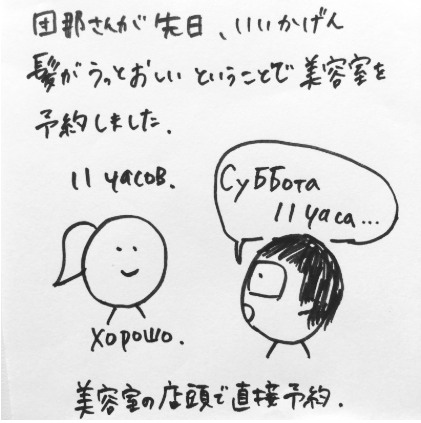 旦那さんが先日、いいかげん
髪がうっとおしいということで美容室を
予約しました.
11 часов.
Суббота
11 часа...
Хорошо.
美容室の店頭で直接予約.